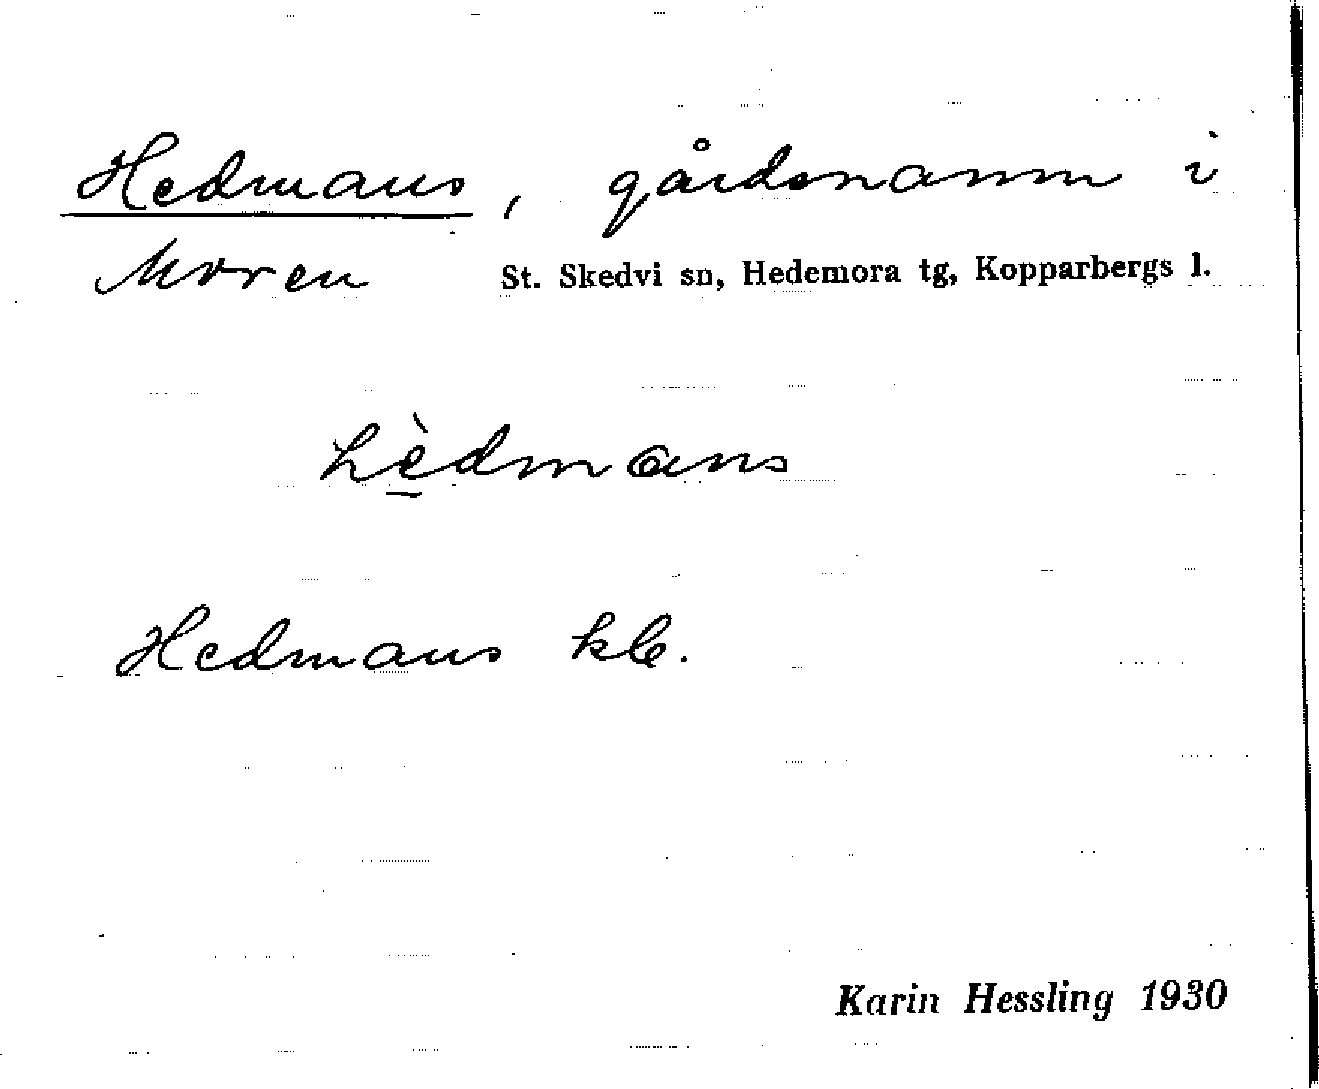 Hedmans, gårdsnamn i
Moren St. Skedvi sn, Hedemora tg, Kopparbergs l.
hèdmans
Hedmans kll.
Karin Hessling 1930